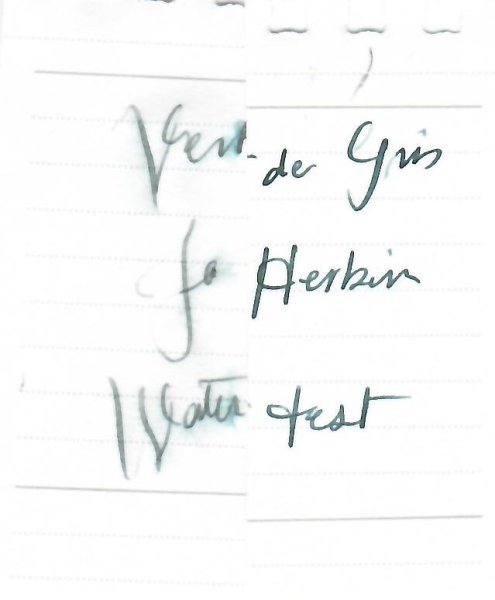 Vert de Gris
Ja Herbin
Water test